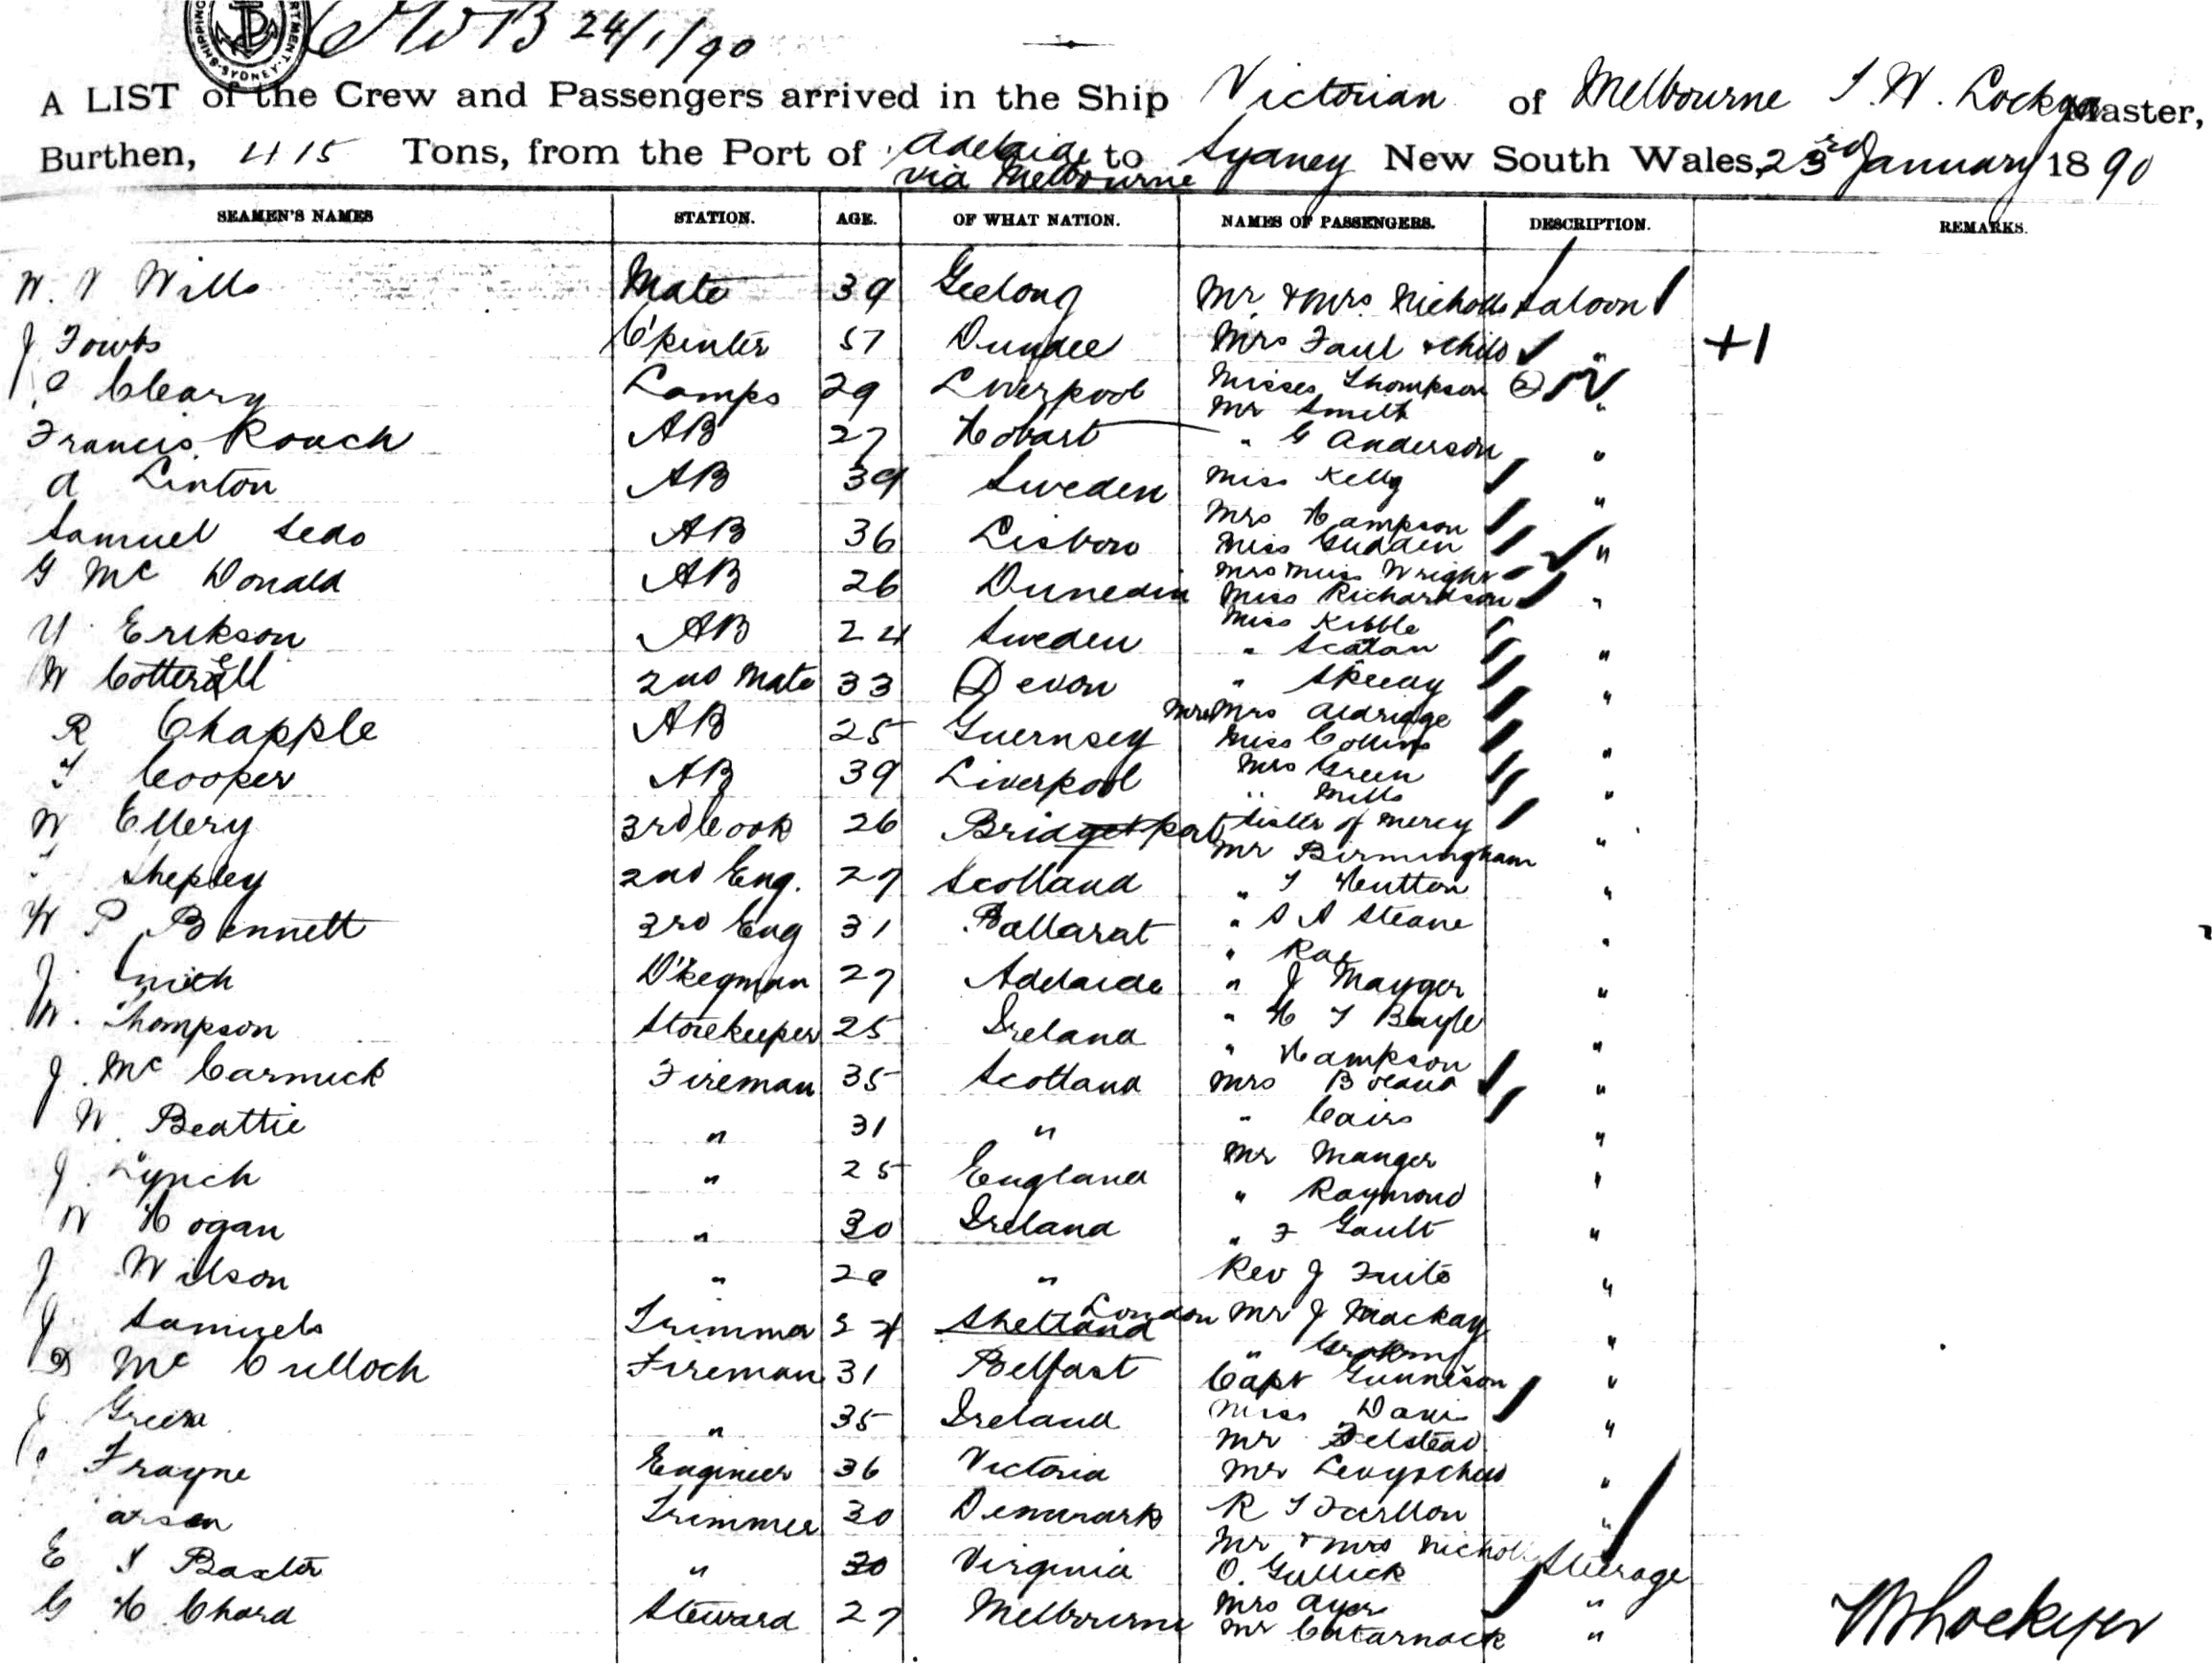 24/1/90
A LIST of the Crew and Passengers arrived in the Ship Victorian of Melbourne T. W. Lockyer Master,
Burthen, 415 Tons, from the Port of Adelaide via Melbourne to Sydney New South Wales, 23rd January 1890
SEAMEN'S NAMES STATION. AGE. OF WHAT NATION. NAMES OF PASSENGERS. DESCRIPTION. REMARKS.
W. V Wills Mate 39 Geelong Mr. & Mrs. Nicholls Saloon
J Fowts C'penter 57 Dundee Mrs Faul & Child " +1
Cleary Lamps 29 Liverpool Misses Thompson (2)
Mr Smith "
Francis Roach AB 27 Hobart " G Anderson "
A Linton AB 39 Sweden Miss Kelly "
Samuel Sedo AB 36 Lisbon Mrs Hampson
Miss Gudden "
G Mc Donald AB 26 Dunedin Mrs Miss Wright
Miss Richardson "
Y Erikson AB 24 Sweden Miss Kibble
" Seaton "
W Cotterell 2nd Mate 33 Devon "
R Chapple AB 25 Guernsey Mrs Aldridge
Miss Collins "
T Cooper AB 39 Liverpool Mrs Green
" Mills "
W Ellery 3rd Cook 26 Bridgeport Sister of Mercy
Mr Birmingham "
Shepley 2nd Eng. 27 Scotland " T Hutton "
W P Bennett 3rd Eng 31 Ballarat " S A Steane
" Rae "
J Smith D'keyman 27 Adelaide " J Mayger "
W. Thompson Storekeeper 25 Ireland " H T Bayle
" Hampson "
J. Mc Carmick Fireman 35 Scotland Mrs Boland "
W. Beattie " 31 " " Cairs "
J Lynch " 25 England Mr Manger
" Raymond "
W Hogan " 30 Ireland " F Gault "
J Wilson " " Rev J Fuite "
J Samuels Trimmer 24 Shetland London Mr J Mackay "
D Mc Culloch Fireman 31 Belfast Capt Gunnison "
J Green " 35 Ireland Miss Davis
Mr Felstead "
Frayne Engineer 36 Victoria Mr "
arsen Trimmer 30 Denmark R T Farllon "
Mr & Mrs Nicholls Steerage
E T Baxter " 30 Virginia O. Gullick
G H Chard Steward 27 Melbourne Mrs Ayers "
Mr Catarnack "
Lockyer